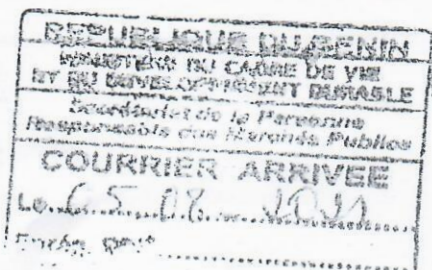 REPUBLIQUE DU BENIN
MINISTERE DU CADRE DE VIE
ET DU DEVELOPPEMENT DURABLE
Secrétariat de la Personne
Responsable des Marchés Publics
COURRIER ARRIVEE
Le